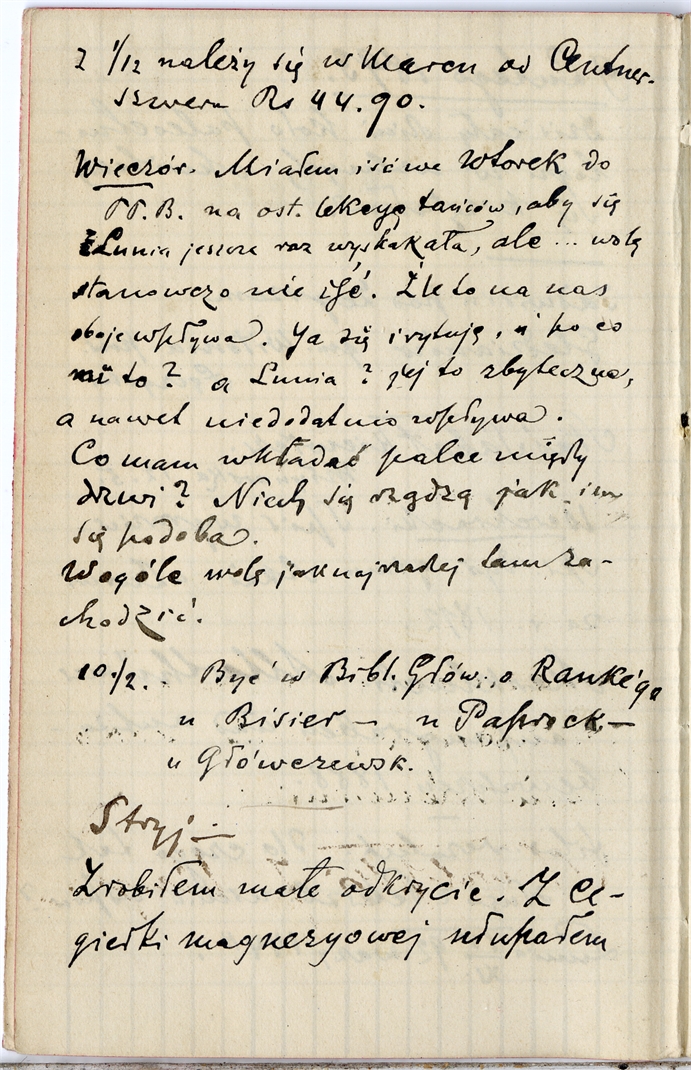 z 1/12 należy się w Marcu od Centner-
szwera Rs 44.90.
Wieczór. Miałem iść we Wtorek do
PP. B. na ost. lekcyę tańców, aby się
Lunia jeszcze raz wyskakała, ale ... wolę
stanowczo nie iść. Źle to na nas
oboje wpływa. Ja się irytuję, i po co
mi to? a Lunia? jej to zbyteczne,
a nawet niedodatnio wpływa.
Co mam wkładać palce między
drzwi? Niech się rządzą jak im
się podoba.
Wogóle wolę jaknajrzadziej tam za-
chodzić.
10/2. - Być w Bibl. Głów. o Rankégo
u Bisier - u Paprock -
u Główczewsk.
Stryj -
Zrobiłem małe odkrycie. Z ce-
giełki magnezyowej utupałem